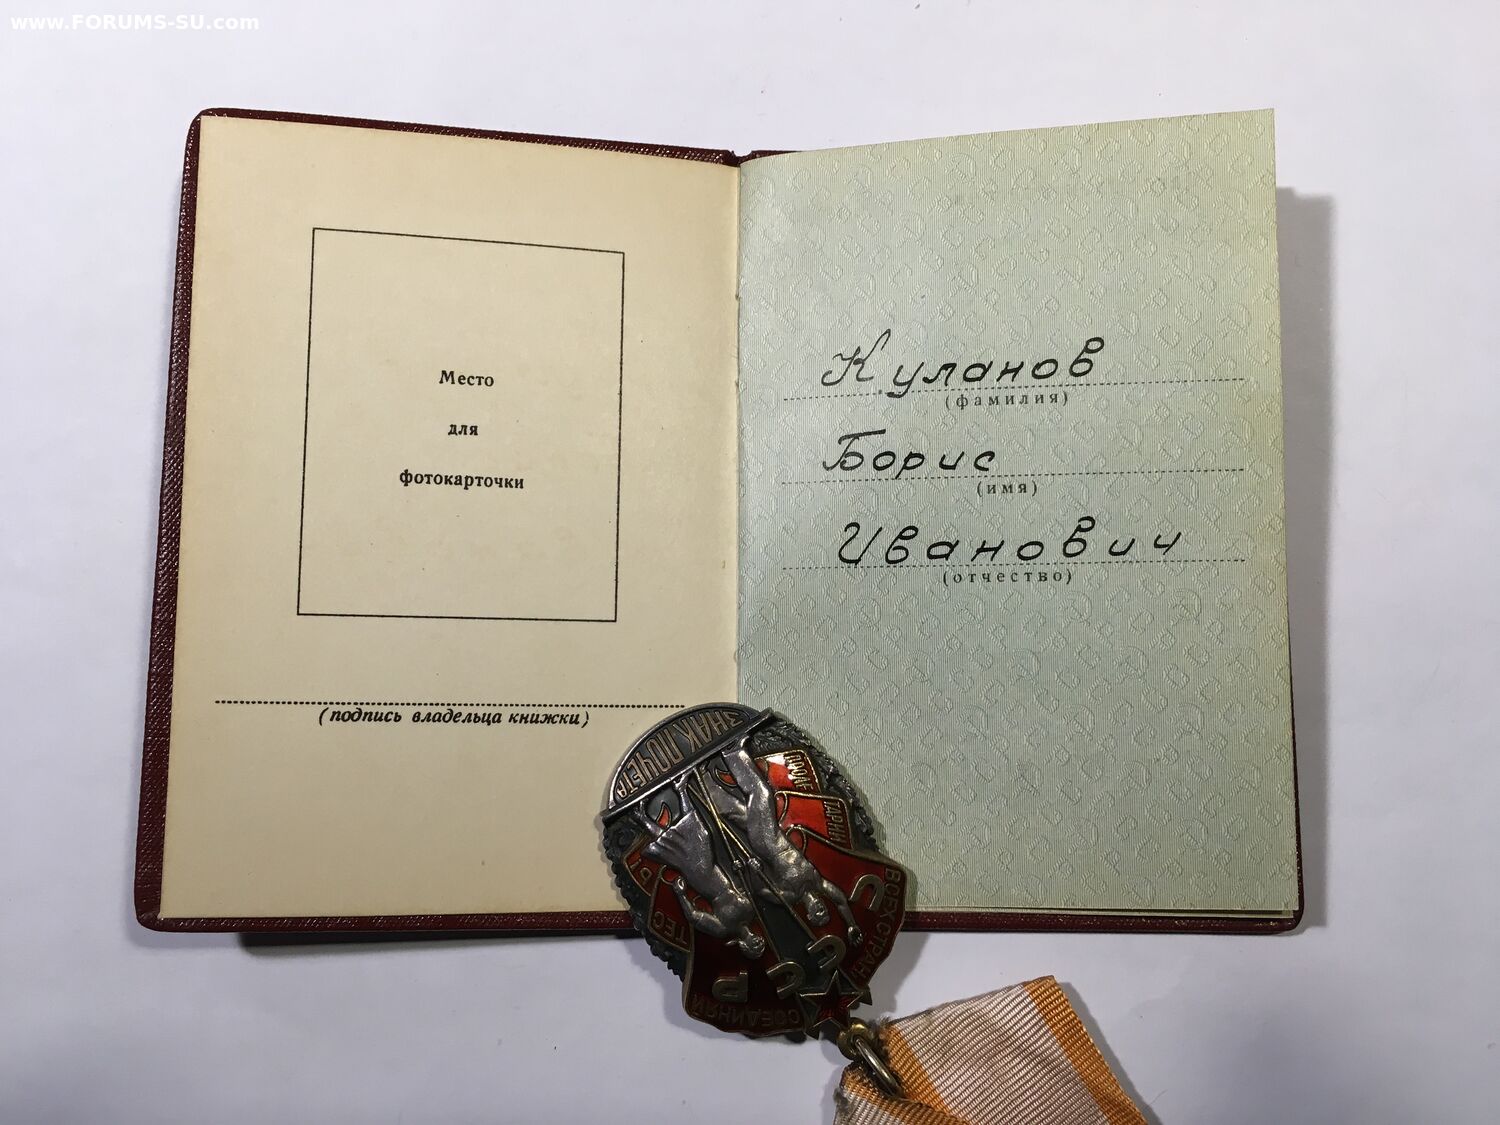 www.FORUMS-SU.com
Место
для
фотокарточки
(подпись владельца книжки)
Куланов
(фамилия)
Борис
(имя)
Иванович
(отчество)
ЗНАК ПОЧЕТА
ПРОЛЕ
ТАРИИ
ВСЕХ СТРАН
СОЕДИНЯЙ
ТЕС
Ь!
СССР